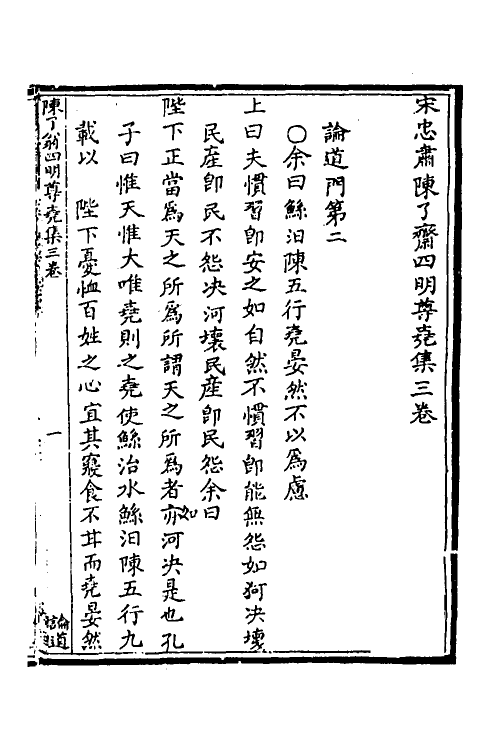 宋忠肅陳了齋四明尊堯集三卷
論道門第二
○余曰鯀汨陳五行堯晏然不以爲慮
上曰夫慣習卽安之如自然不慣習卽能無怨如河决壞
民産卽民不怨决河壞民産卽民怨余曰
陛下正當爲天之所爲所謂天之所爲者亦如河决是也孔
子曰惟天惟大唯堯則之堯使鯀治水鯀汨陳五行九
載以　陛下憂恤百姓之心宜其寢食不甘而堯晏然
陳了翁四明尊堯集三卷
一
論道